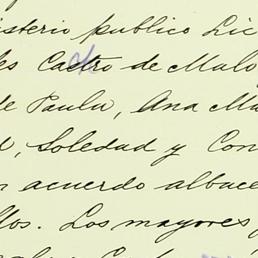 isterio publico Lic
es Castro de Malo
de Paula, Ana Ma
d, Soledad y Con
n acuerdo albace
llos. Los mayores